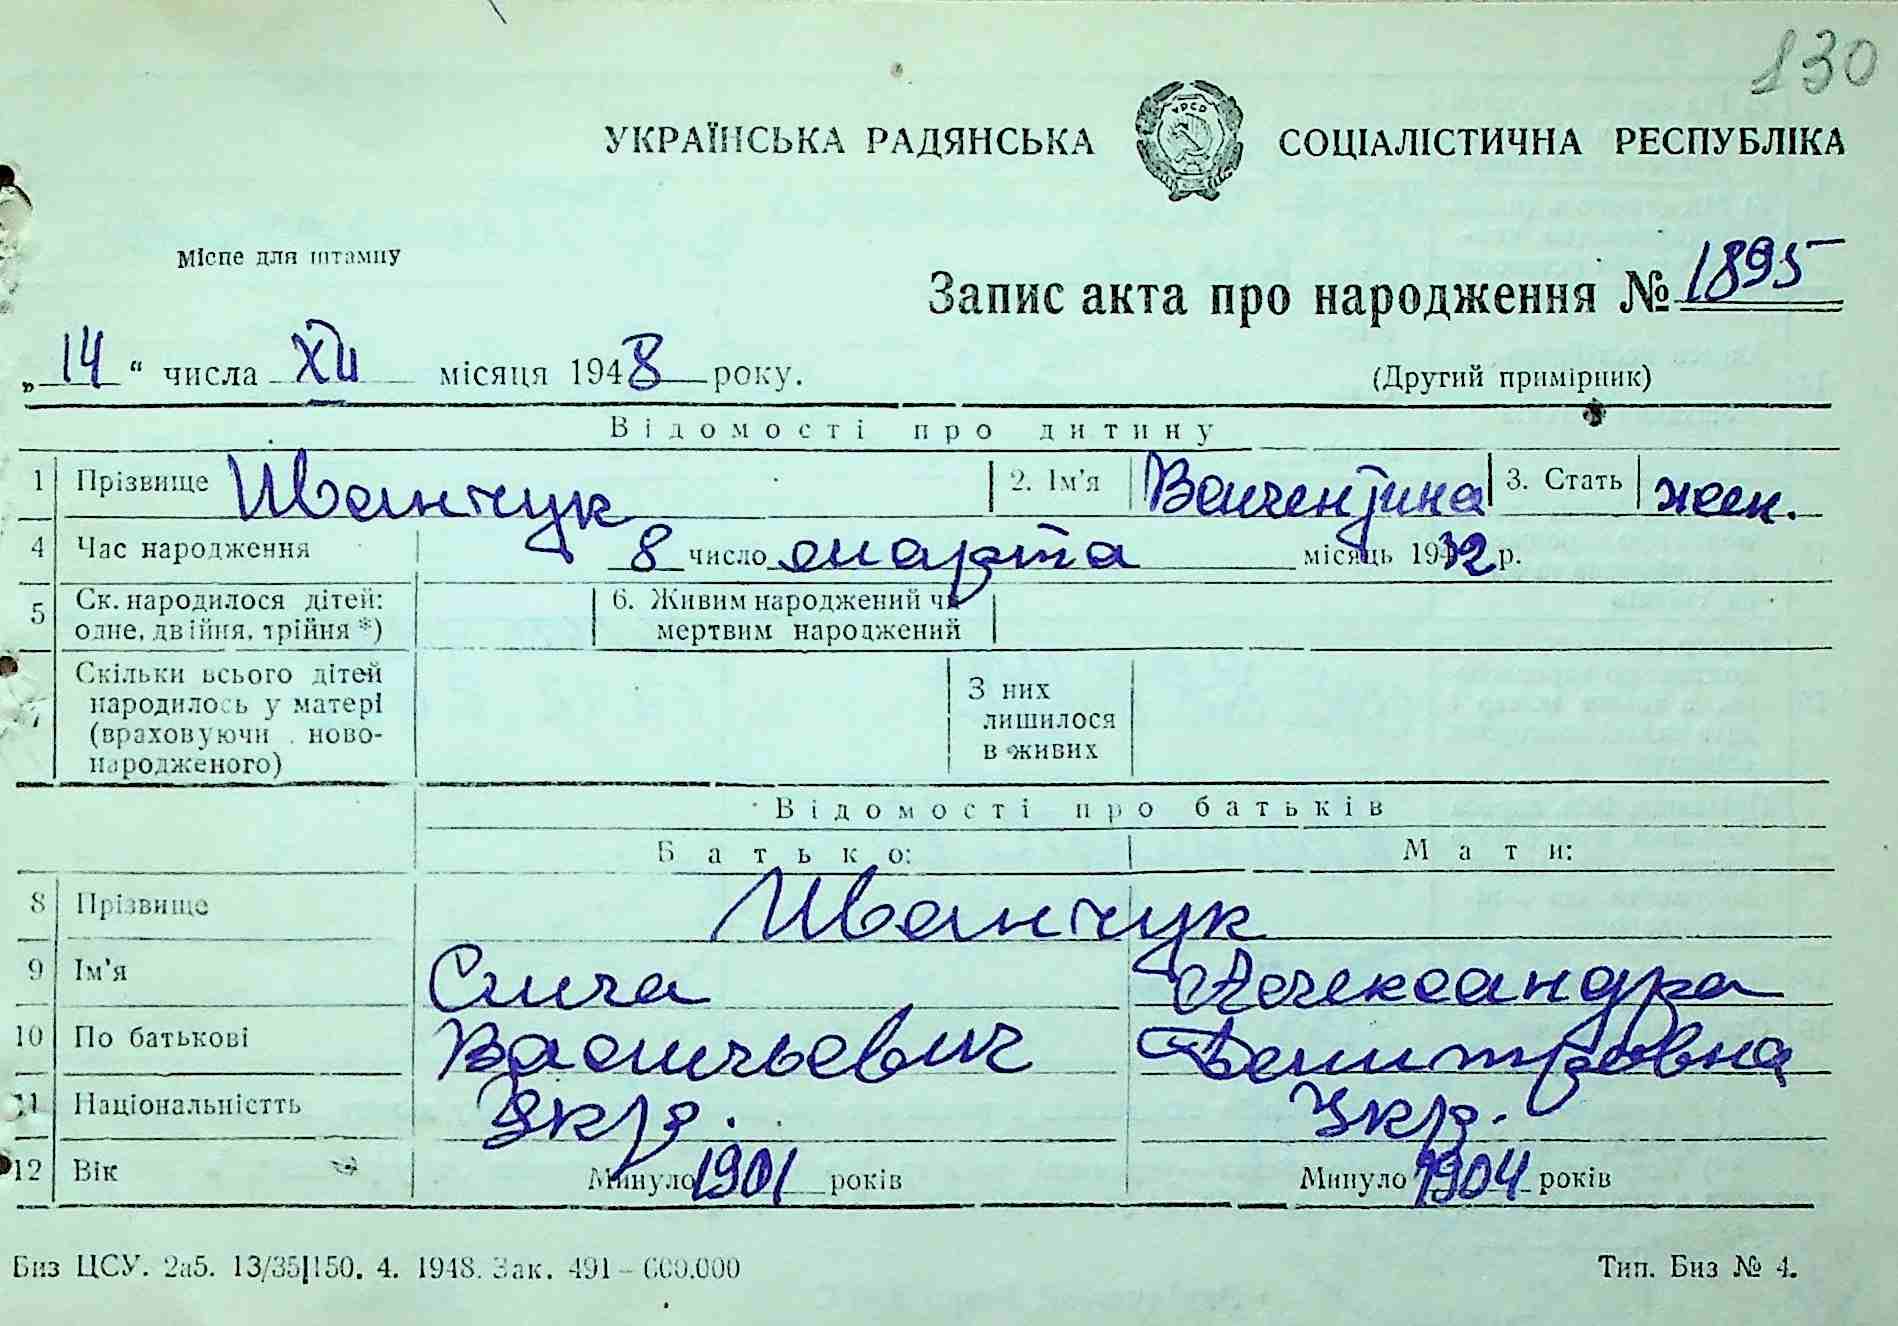 130
УКРАЇНСЬКА РАДЯНСЬКА СОЦІАЛІСТИЧНА РЕСПУБЛІКА
УРСР
Місце для штампу
Запис акта про народження № 1895
„14“ числа XII місяця 1948 року.
(Другий примірник)
Відомості про дитину
1 Прізвище Иванчук 2. Ім'я Валентина 3. Стать жен.
4 Час народження 8 число марта місяць 1932 р.
5 Ск. народилося дітей: одне, двійня, трійня *) 6. Живим народжений чи мертвим народжений
7 Скільки всього дітей народилось у матері (враховуючи новонародженого) З них лишилося в живих
Відомості про батьків
Батько: Мати:
8 Прізвище Иванчук
9 Ім'я Сила Александра
10 По батькові Васильевич Дмитровна
11 Національністть Укр. Укр.
12 Вік Минуло 1901 років Минуло 1904 років
Биз ЦСУ. 2а5. 13/35|150. 4. 1948. Зак. 491–600.000 Тип. Биз № 4.